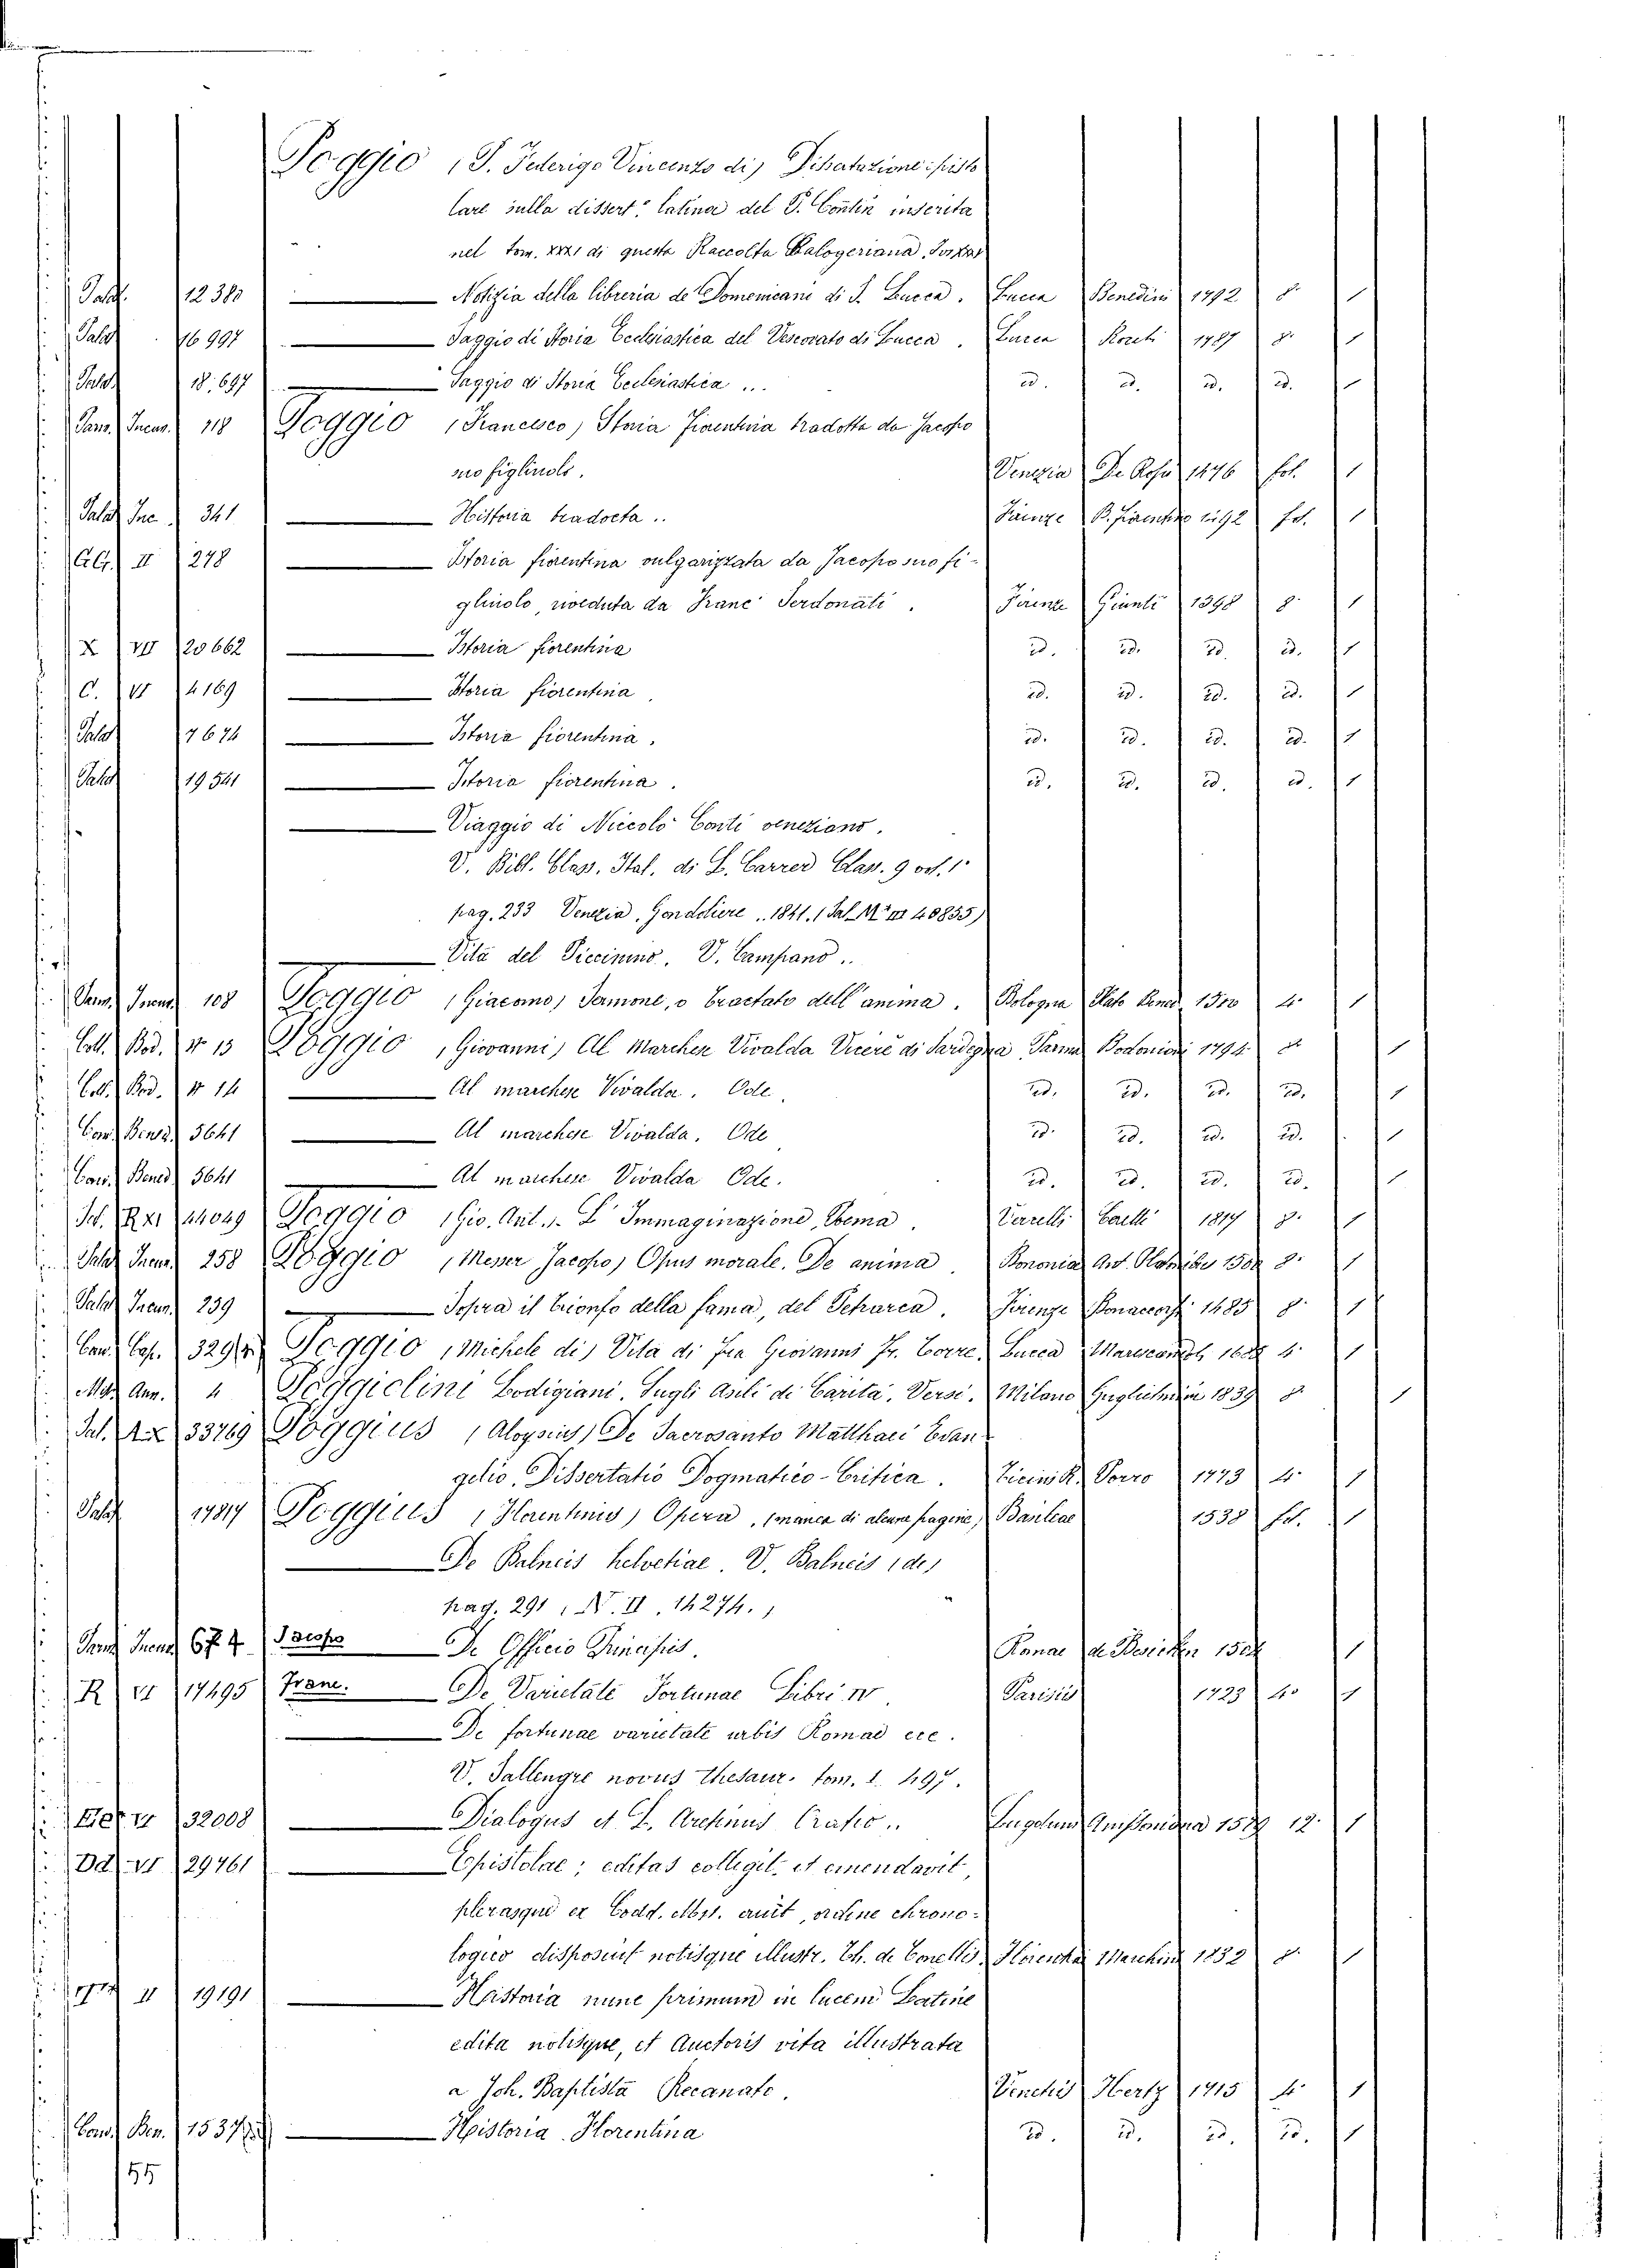 Poggio (P. Federigo Vincenzo di) Dissertazione episto
lare sulla dissert. latina del P. Contin inserita
nel tom. XXXI di questa Raccolta Calogeriana.
Palat. 12380 Notizia della libreria de' Domenicani di S. Lucca. Lucca Benedini 1792 8° 1
Palat. 16997 Saggio di Storia Ecclesiastica del Vescovato di Lucca. Lucca 1787 8° 1
Palat. 18.697 Saggio di Storia Ecclesiastica ... id. id. id. id. 1
Panc. Incun. 118 Poggio (Francesco) Storia Fiorentina tradotta da Jacopo
suo figliuolo. Venezia De Rossi 1476 fol. 1
Palat. Inc. 341 Historia tradocta .. Firenze B. Fiorentino 1492 fol. 1
GG. II 278 Istoria fiorentina vulgarizzata da Jacopo suo fi-
gliuolo, riveduta da Franc° Serdonati. Firenze Giunti 1598 8° 1
X VII 20662 Istoria fiorentina id. id. id. id. 1
C. VI 4169 Storia fiorentina. id. id. id. id. 1
Palat. 7674 Istoria fiorentina. id. id. id. id. 1
Palat. 19541 Istoria fiorentina. id. id. id. id. 1
Viaggio di Niccolò Conti veneziano.
V. Bibl. Class. Ital. di L. Carrer Class. 9 vol. 1°
pag. 233 Venezia, Gondoliere. 1841. 40835)
Vita del Piccinino. V. Campano..
Panc. Incun. 108 Poggio (Giacomo) Sermone, o Tractato dell'anima. Bologna Plato Bened. 1500 4° 1
Coll. Bod. N° 13 Poggio (Giovanni) Al Marchese Vivalda Vicerè di Sardegna Parma Bodoniani 1794 8° 1
Coll. Bod. N° 14 Al marchese Vivalda. Ode. id. id. id. id. 1
Conv. Bened. 5641 Al marchese Vivalda. Ode id. id. id. id. 1
Conv. Bened. 5641 Al marchese Vivalda Ode. id. id. id. id. 1
44049 Poggio (Gio. Ant.). L'Immaginazione, Poema. Vercelli 1817 8° 1
Palat. Incun. 258 Poggio (Messer Jacopo) Opus morale. De anima. Bononia Ant. 8° 1
Palat. Incun. 239 Sopra il trionfo della fama, del Petrarca. Firenze Bonaccorsi 1485 8° 1
Con. Cap. Poggio (Michele di) Vita di Fra Giovanni Fr. Torre. Lucca Marescandoli 4° 1
Mss. Ann. 4 Poggiolini Lodigiani. Sugli Asili di Carità. Versi. Milano Guglielmini 1839 8° 1
33769 Poggius (Aloysius) De Sacrosanto Matthaei Evan-
gelio. Dissertatio Dogmatico-Critica. Ticini R. Porro 1773 4° 1
Palat. 17817 Poggius (Florentinus) Opera. (manca di alcune pagine) Basileae 1538 fol. 1
De Balneis helvetiae. V. Balneis (de)
pag. 291 (N. II. 14274.)
Panc. Incun. 674 Jacopo De Officio Principis. Romae de Besicken 1504 1
R VI 17495 Franc. De Varietate Fortunae Libri IV. Parisiis 1723 4° 1
De fortunae varietate urbis Romae etc.
V. Sallengre novus Thesaur. tom. 1. 497.
VI 32008 Dialogus et L. Aretinus Oratio.. Lugdun. 12° 1
Dd VI 29761 Epistolae; editas collegit, et emendavit,
plerasque ex Codd. Mss. eruit, ordine chrono-
logico disposuit notisque illustr. Th. de Tonellis. Florentiae Marchini 1832 8° 1
II 19191 Historia nunc primum in lucem Latine
edita notisque, et Auctoris vita illustrata
a Joh. Baptista Recanato. Venetiis Hertz 1715 4° 1
Conv. Ben. 1537 Historia Florentina id. id. id. id. 1
55